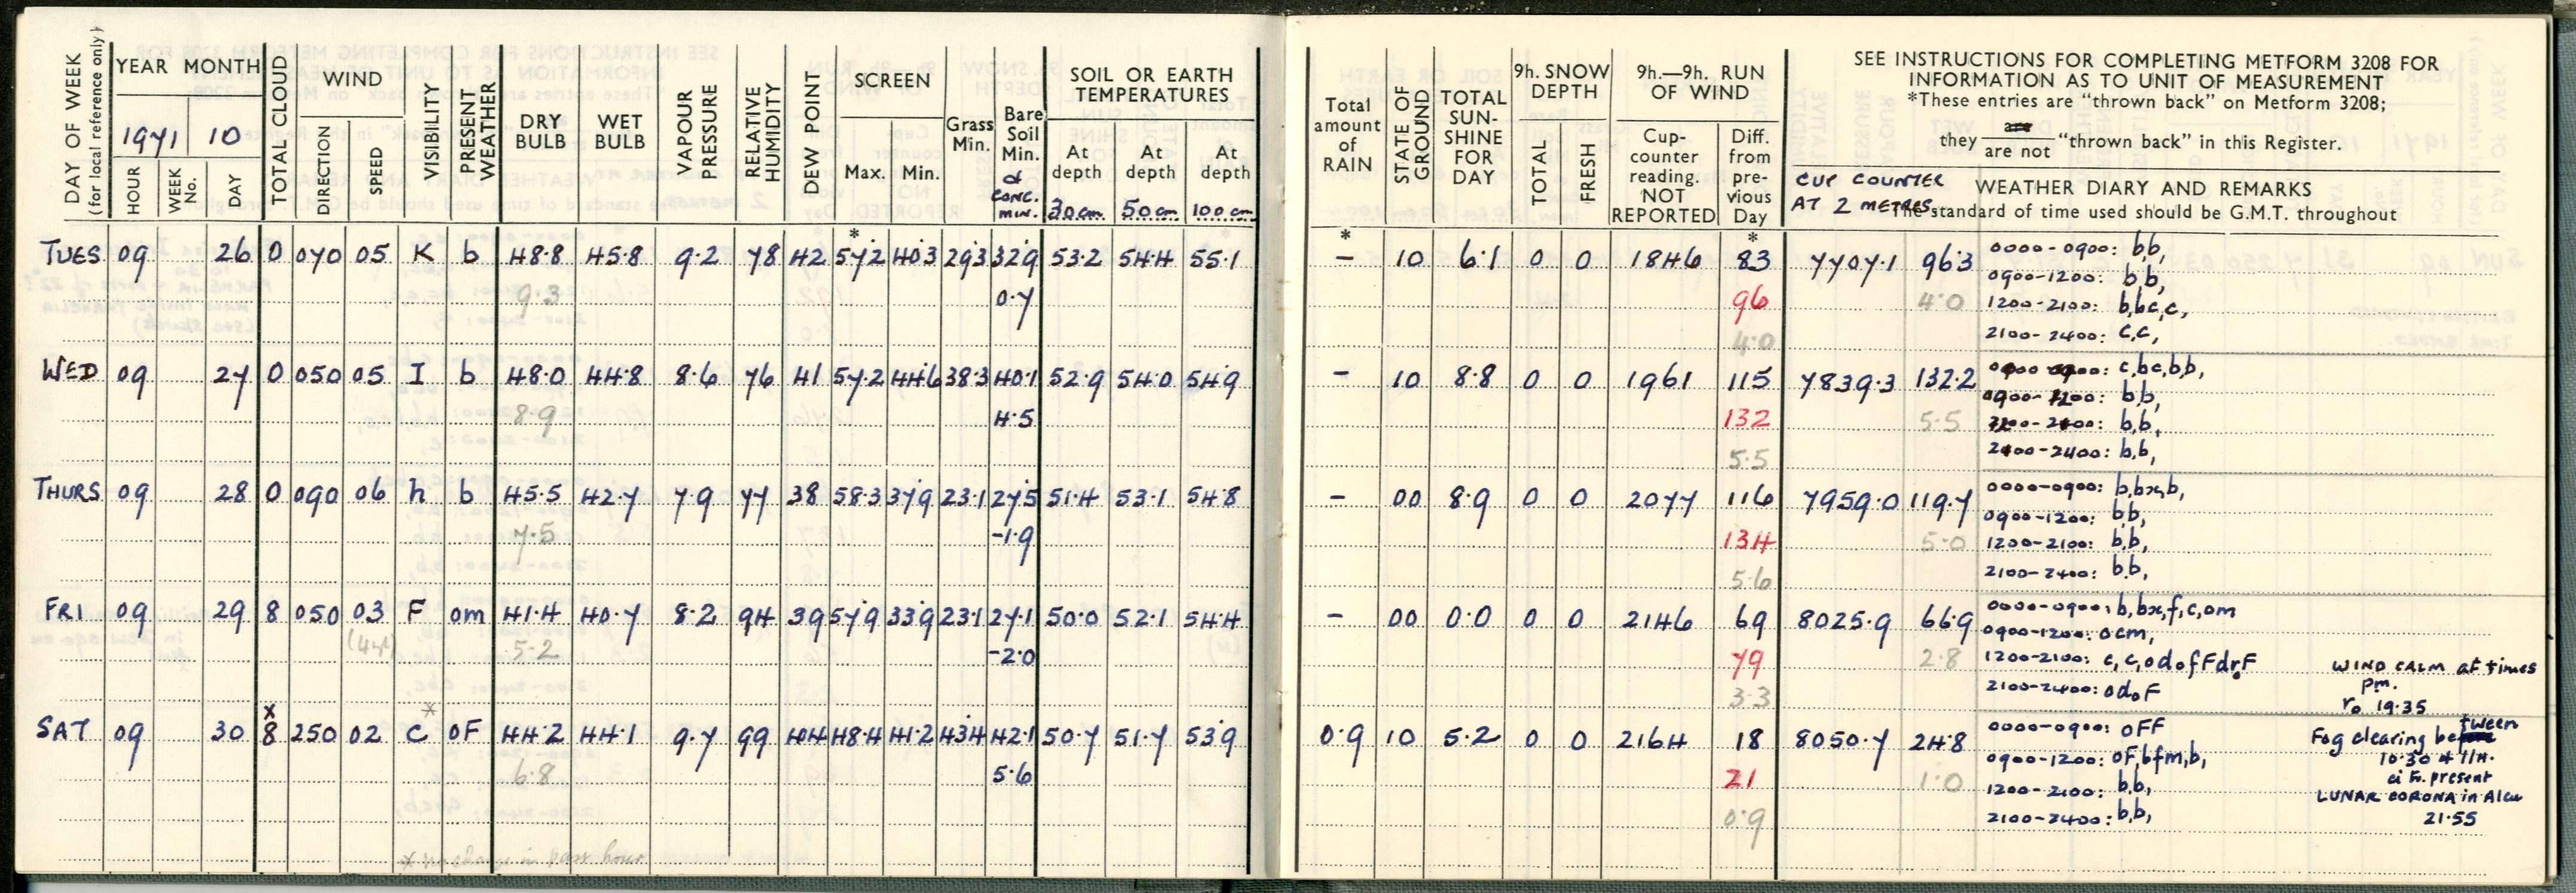 DAY OF WEEK
(for local reference only)
YEAR MONTH
1971 10
HOUR
WEEK No.
DAY
TOTAL CLOUD
WIND
DIRECTION
SPEED
VISIBILITY
PRESENT WEATHER
DRY BULB
WET BULB
VAPOUR PRESSURE
RELATIVE HUMIDITY
DEW POINT
SCREEN
Max. Min.
Grass Min.
Bare Soil Min.
or CONC. MIN.
SOIL OR EARTH TEMPERATURES
At depth 30 cm.
At depth 50 cm
At depth 100 cm
Total amount of RAIN
STATE OF GROUND
TOTAL SUN-SHINE FOR DAY
9h. SNOW DEPTH
TOTAL
FRESH
9h.—9h. RUN OF WIND
Cup-counter reading. NOT REPORTED
Diff. from pre-vious Day
SEE INSTRUCTIONS FOR COMPLETING METFORM 3208 FOR
INFORMATION AS TO UNIT OF MEASUREMENT
*These entries are "thrown back" on Metform 3208;
they are / are not "thrown back" in this Register.
CUP COUNTER AT 2 METRES
WEATHER DIARY AND REMARKS
The standard of time used should be G.M.T. throughout
* * *
TUES 09 26 0 070 05 K b 48.8 45.8 9.2 78 42 57.2 40.3 29.3 32.9 53.2 54.4 55.1 - 10 6.1 0 0 1846 83 7707.1 96.3 0000-0900: b,b,
0900-1200: b,b,
9.3 0.7 96 4.0 1200-2100: b,bc,c,
4.0 2100-2400: c,c,
WED 09 27 0 050 05 I b 48.0 44.8 8.6 76 41 57.2 44.6 38.3 40.1 52.9 54.0 54.9 - 10 8.8 0 0 1961 115 7839.3 132.2 c,bc,b,b,
b,b,
8.9 4.5 132 5.5 b,b,
5.5 2100-2400: b,b,
THURS 09 28 0 090 06 h b 45.5 42.7 7.9 77 38 58.3 37.9 23.1 27.5 51.4 53.1 54.8 - 00 8.9 0 0 2077 116 7959.0 119.7 0000-0900: b,bx,b,
0900-1200: b,b,
7.5 -1.9 134 5.0 1200-2100: b,b,
5.6 2100-2400: b,b,
FRI 09 29 8 050 03 F om 41.4 40.7 8.2 94 39 57.9 33.9 23.1 27.1 50.0 52.1 54.4 - 00 0.0 0 0 2146 69 8025.9 66.9 0000-0900: b,bx,f,c,om
0900-1200: ocm,
5.2 -2.0 79 2.8 1200-2100: c,c,odofFdrF WIND CALM at times
pm.
3.3 2100-2400: odoF
ro 19.35
x *
SAT 09 30 8 250 02 C oF 44.2 44.1 9.7 99 44 48.4 41.2 43.4 42.1 50.7 51.7 53.9 0.9 10 5.2 0 0 2164 18 8050.7 24.8 0000-0900: oFF Fog clearing between
10.30 & 11H.
6.8 5.6 21 1.0 0900-1200: oF,bfm,b,
ci present
1200-2100: b,b, LUNAR CORONA in
0.9 2100-2400: b,b, 21.55
* no change in past hour